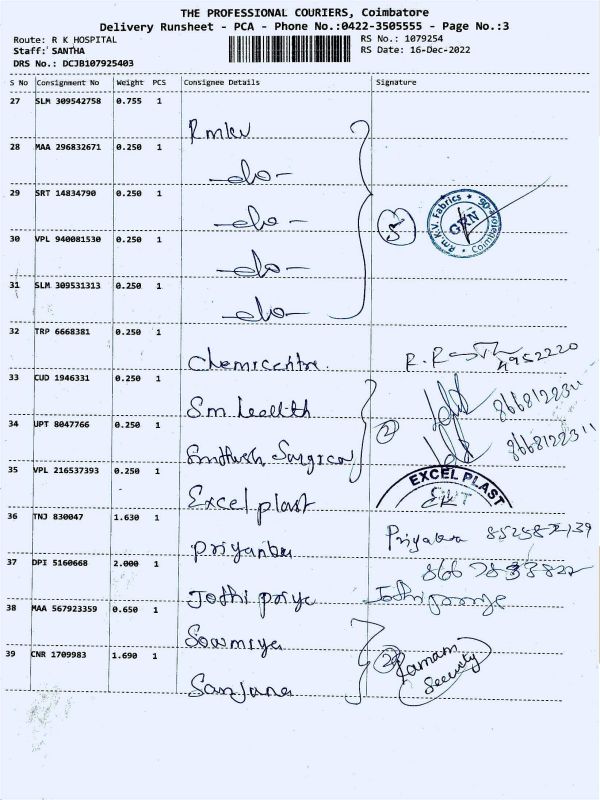 THE PROFESSIONAL COURIERS, Coimbatore
Delivery Runsheet - PCA - Phone No.:0422-3505555 - Page No.:3
Route: R K HOSPITAL RS No.: 1079254
Staff: SANTHA RS Date: 16-Dec-2022
DRS No.: DCJB107925403
S No Consignment No Weight PCS Consignee Details Signature
27 SLM 309542758 0.755 1
Rmkv
28 MAA 296832671 0.250 1
-do-
29 SRT 14834790 0.250 1
-do-
5
Rm.K.V. Fabrics
GRN
Coimbatore
30 VPL 940081530 0.250 1
-do-
31 SLM 309531313 0.250 1
-do-
32 TRP 6668381 0.250 1
4952220
33 CUD 1946331 0.250 1
8668122311
Sm
34 UPT 8047766 0.250 1
2
8668122311
Surgical
35 VPL 216537393 0.250 1
EXCEL PLAST
Excel plast
36 TNJ 830047 1.630 1
priyanka
37 DPI 5160668 2.000 1
Jothi priya
38 MAA 567923359 0.650 1
Sowmiya
39 CNR 1709983 1.690 1
2
Security
Sanjana